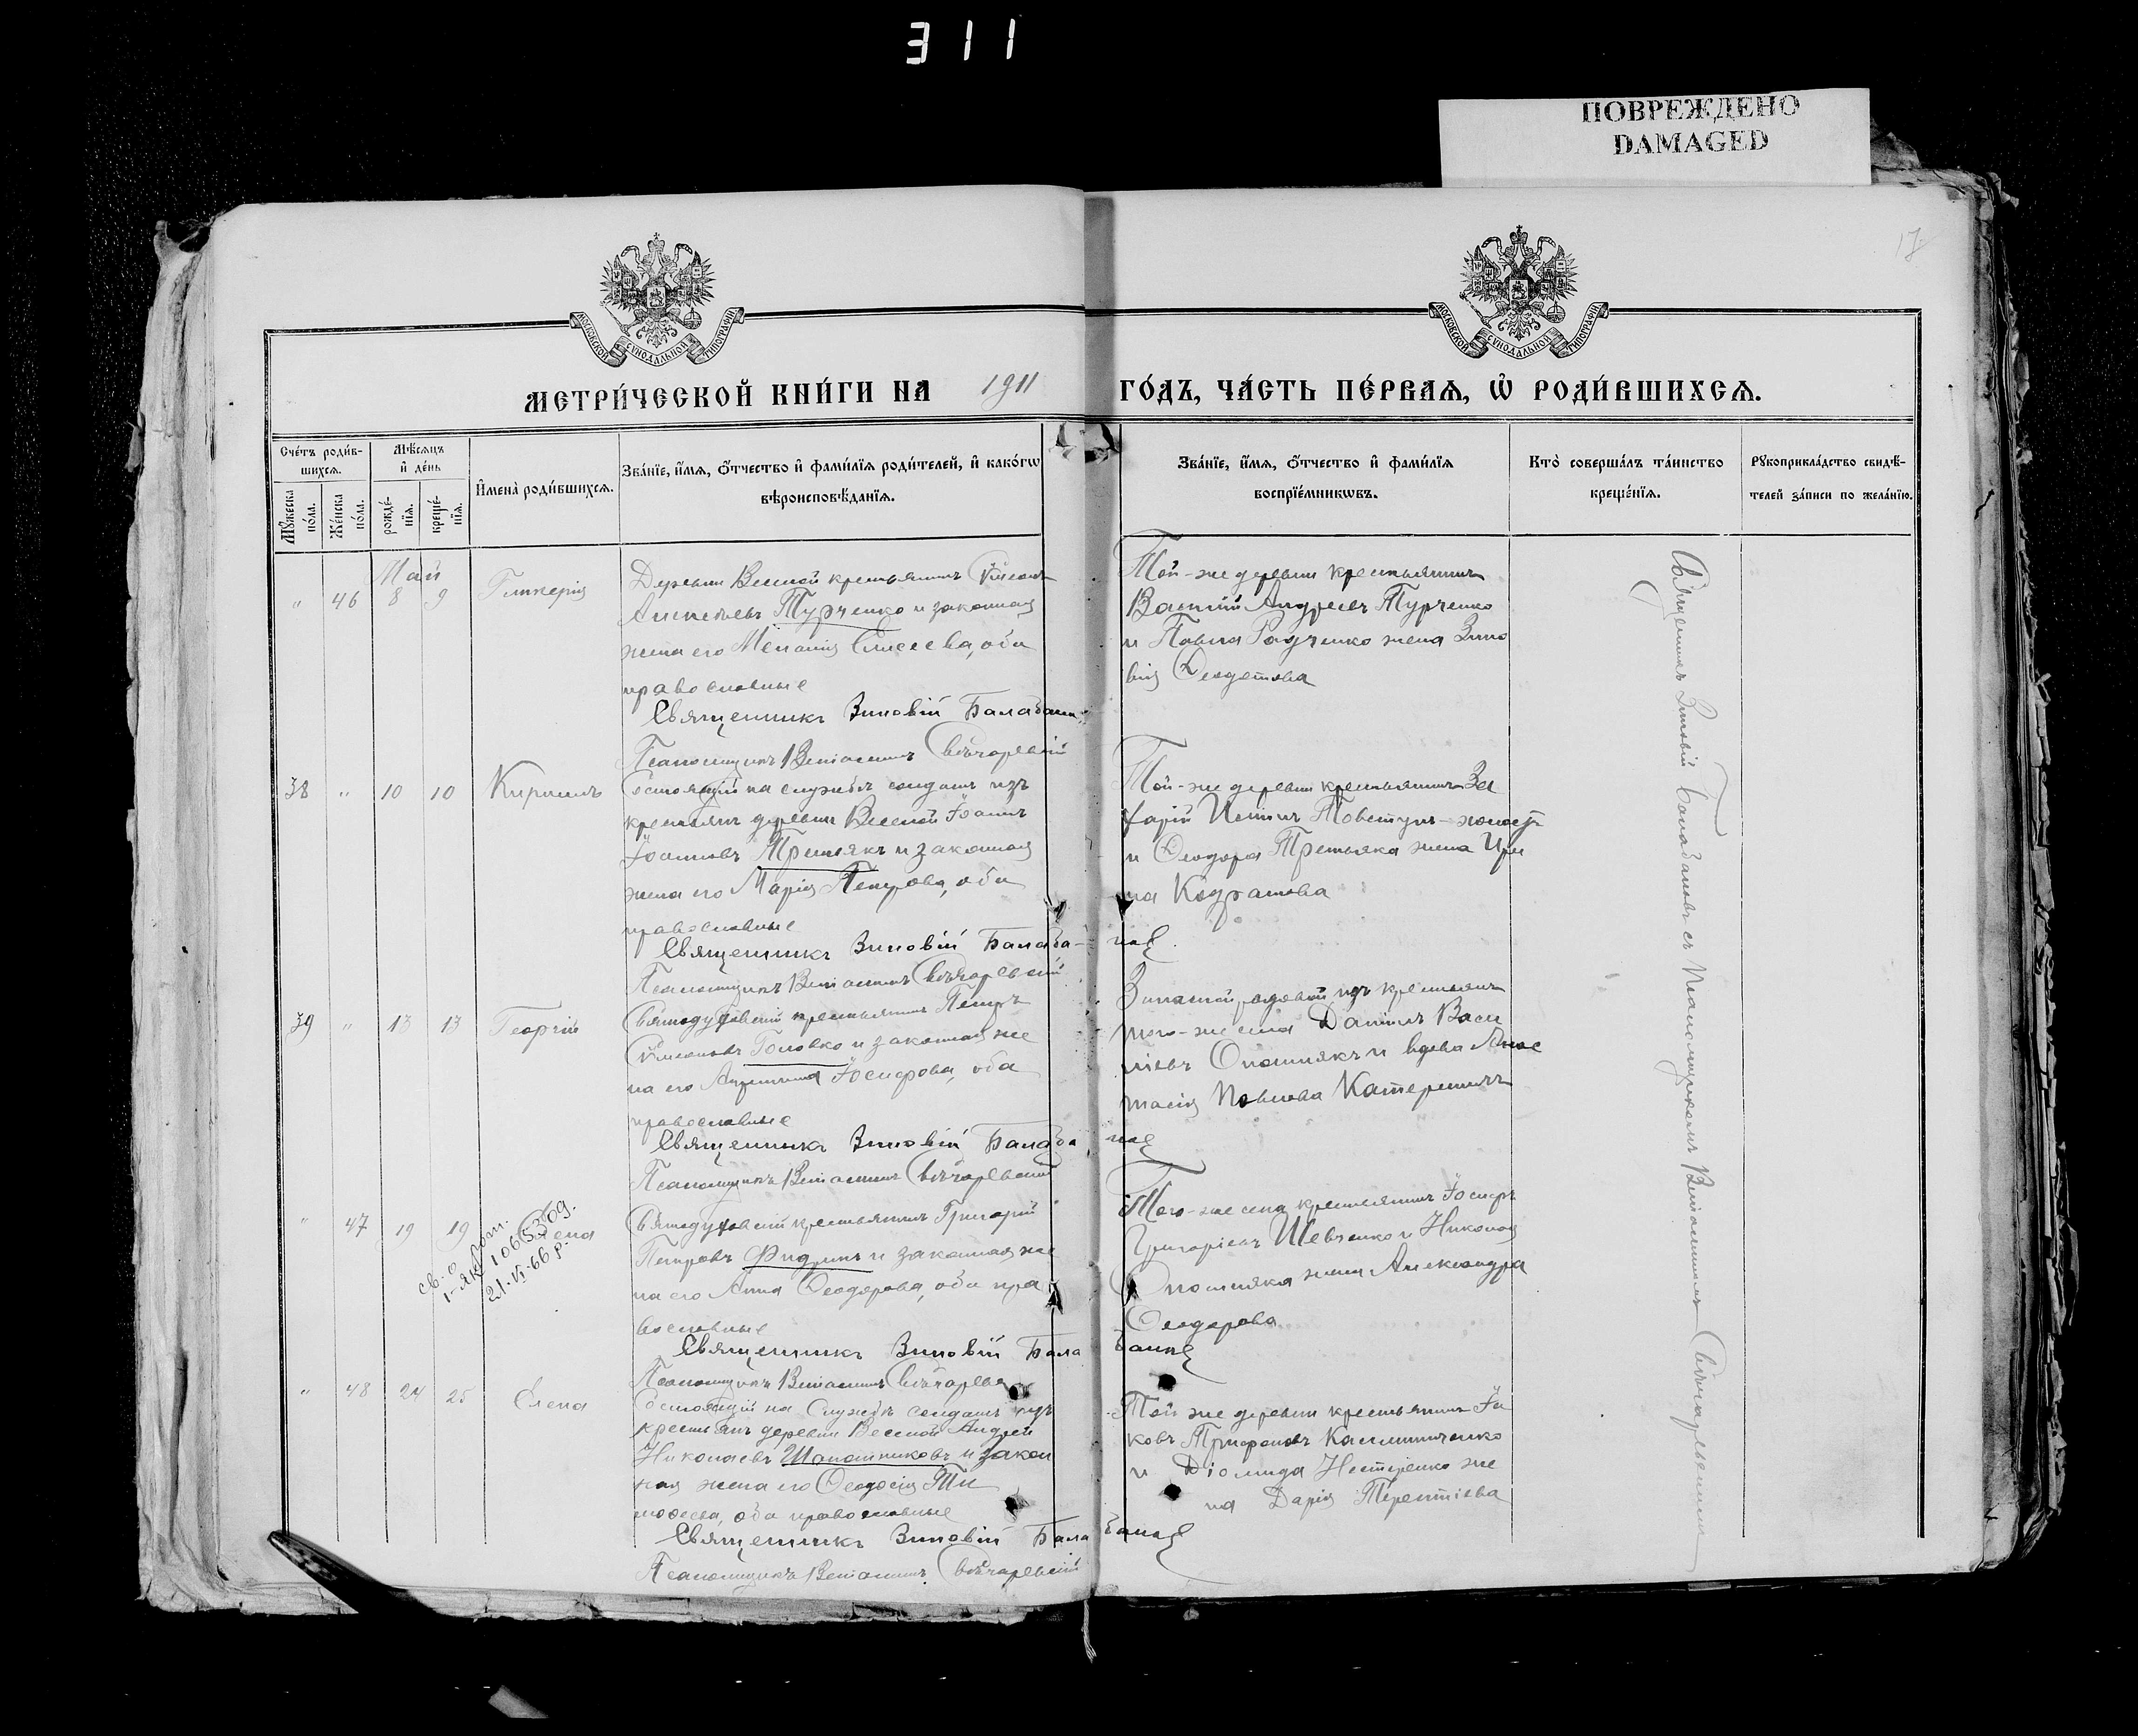 311
ПОВРЕЖДЕНО
DAMAGED
17
МОСКОВСКОЙ СѴНОДАЛЬНОЙ ТИПОГРАФІИ
МОСКОВСКОЙ СѴНОДАЛЬНОЙ ТИПОГРАФІИ
МЕТРИ́ЧЕСКОЙ КНИ́ГИ НА 1911 ГО́ДЪ, ЧА́СТЬ ПЕ́РВАЯ, Ѽ РОДИ́ВШИХСЯ.
Сче́тъ роди́в-
шихся.
Мѣ́сяцъ
и҆ де́нь
Мꙋ́жеска
по́ла.
Же́нска
по́ла.
рожде́-
нїя.
креще́-
нїя.
И҆мена̀ роди́вшихся.
Зва́нїе, и҆́мя, ѻ҆́тчество и҆ фами́лїя роди́телей, и҆ како́гѡ
вѣроисповѣ́данїя.
Зва́нїе, и҆́мя, ѻ҆́тчество и҆ фами́лїя
воспрїе́мникѡвъ.
Кто̀ соверша́лъ та́инство
креще́нїя.
Рꙋкоприкла́дство свидѣ́-
телей за́писи по жела́нїю.
Май
" 46 8 9 Гликерія
Деревни Веселой крестьянинъ Симеонъ
Алексѣевъ Турченко и законная
жена его Меланія Елисеева, оба
православные
Священникъ Зиновій Балабан
Псаломщикъ Веніаминъ Свѣчаревскій
Той-же деревни крестьянинъ
Василій Андреевъ Турченко
и Павла Радченко жена Зино
вія Ѳеодотова
38 " 10 10 Кириллъ
Состоящій на службѣ солдатъ изъ
крестьянъ деревни Веселой Іоаннъ
Іоанновъ Третьякъ и законная
жена его Марія Петрова, оба
православные
Священникъ Зиновій Балаба-
новъ
Псаломщикъ Веніаминъ Свѣчаревскій
Той-же деревни крестьянинъ За
харій Товстукъ-холостъ
и Ѳеодора Третьяка жена Ири
на Кодратова
39 " 13 13 Георгій
Святодуховскій крестьянинъ Петръ
Симеоновъ Головко и законная же
на его Іосифова, оба
православные
Священникъ Зиновій Балаба
новъ
Псаломщикъ Веніаминъ Свѣчаревскій
Запасной рядовой изъ крестьянъ
того-же села Даніилъ Васи
ліевъ Опошнякъ и вдова Анас
тасія Павлова Катериничъ
" 47 19 19 Елена
св-о
21-VI-66 р.
Святодуховскій крестьянинъ Григорій
Петровъ Фидрикъ и законная же
на его Анна Ѳеодорова, оба пра
вославные
Священникъ Зиновій Бала
бановъ
Псаломщикъ Веніаминъ Свѣчаревск
Того-же села крестьянинъ Іосифъ
Григоріевъ Шевченко и Николая
Опошняка жена Александра
Ѳеодорова
" 48 24 25 Елена
Состоящій на службѣ солдатъ изъ
крестьянъ деревни Веселой Андрей
Николаевъ Шапошниковъ и закон
ная жена его Ѳеодосія Ти
моѳеева, оба православные
Священникъ Зиновій Бала
бановъ
Псаломщикъ Веніаминъ Свѣчаревскій
Той же деревни крестьянинъ Іа
ковъ Трифоновъ Калиниченко
и Діомида Нестеренко же
на Дарія Терентіева
Священникъ Зиновій Балабановъ съ Псаломщикомъ Веніаминомъ Свѣчаревскимъ